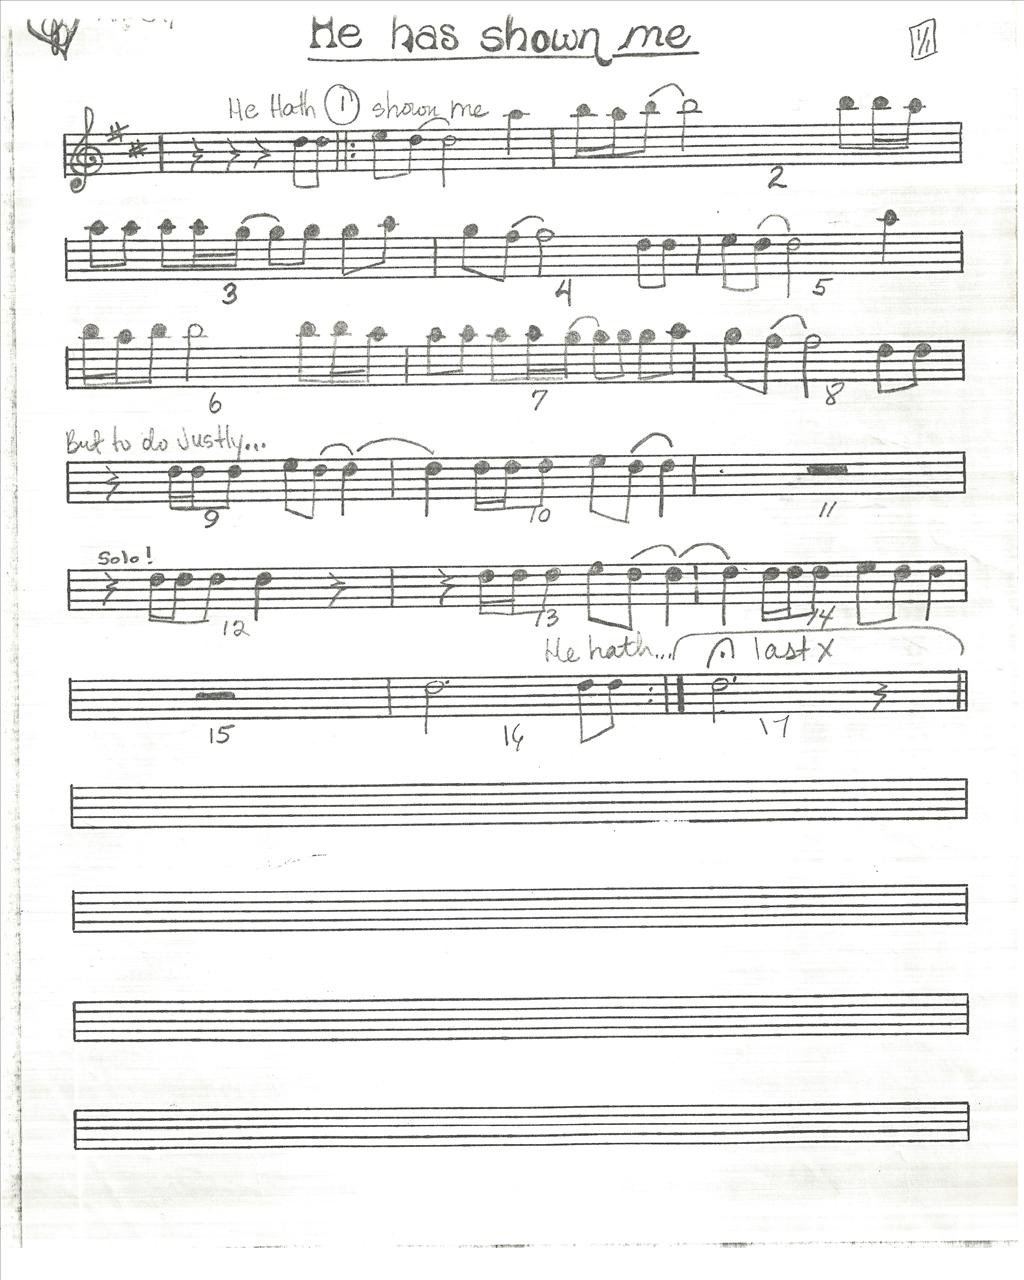 He has shown me
1/1
He Hath 1 shown me
2
3 4 5
6 7 8
But to do Justly...
9 10 11
Solo!
12 13 14
He hath... last X
15 16 17